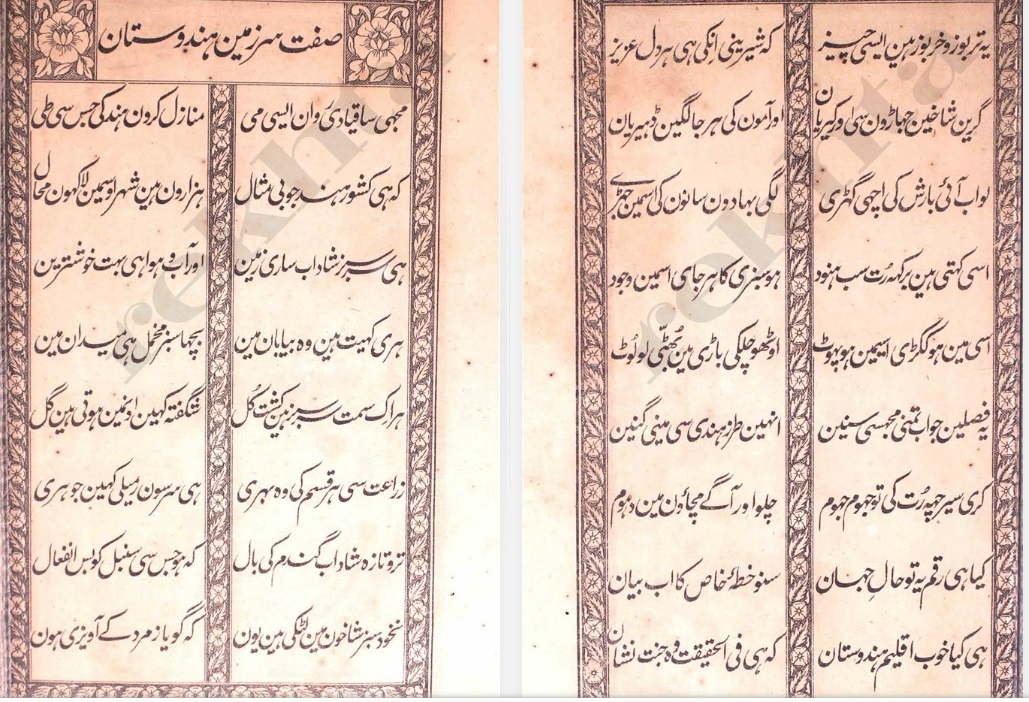 صفت سرزمین ہندوستان
مجھی ساقیا دی وان ایسی می منازل کرون ہند کی جس سی طی
کہ ہی کشور ہند جو بی مثال ہزارون ہین شہر اوسمین لاکھون محال
ہی سرسبز شاداب ساری زمین اور آب و ہوا ہی بہت خوشترین
ہری کہیت ہین وہ بیابان مین بچہا سبز مخمل ہی میدان مین
ہر اک سمت سرسبز ہین کشت گل شگفتہ کہین اونمین ہوتی ہین گل
زراعت سی ہر قسم کی وہ بہری ہی سرسون رمیلی کہین جو ہری
تر و تازہ شاداب گندم کی بال کہ ہو جس سی سنبل کو بس انفعال
نخود سبز شاخون مین لٹکی ہین یون کہ گویا زمرد کے آویزی ہون
یہ تربوز و خربوز ہین ایسی چیز کہ شیرینی انکی ہی ہر دل عزیز
گرین شاخین جہاڑون سی اور کیریان اور آمون کی ہر جا لگین ڈہیریان
لو اب آئی بارش کی اچہی گھڑی لگی بہادون سانون کی اسمین جہڑی
اسی کہتی ہین برکہہ رت سب ہنود ہو سبزی کا ہر جای اسمین وجود
اسی مین ہو ککڑی ایسمین ہو پہوٹ اوٹھو چلکی باڑی مین بھٹی لو لوٹ
یہ فصلین جو اب تمنی مجسی سنین انہین طرز ہندی سی مینی گنین
کری سیر جہہ رت کی تو جہوم جہوم چلو اور آگے مچاؤن مین دہوم
کیا ہی رقم یہ تو حالِ جہان سنو خطۂ خاص کا اب بیان
ہی کیا خوب اقلیم ہندوستان کہ ہی فی الحقیقت وہ جنت نشان
rekhta
rekhta